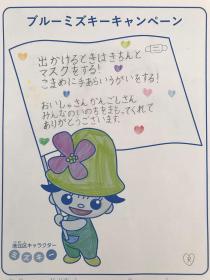 ブルーミズキーキャンペーン
出かけるときはきちんと
マスクをする!
こまめに手あらいうがいをする!
おいしゃさんかんごしさん
みんなのいのちをまもってくれて
ありがとうございます。
港北区キャラクター
ミズキー